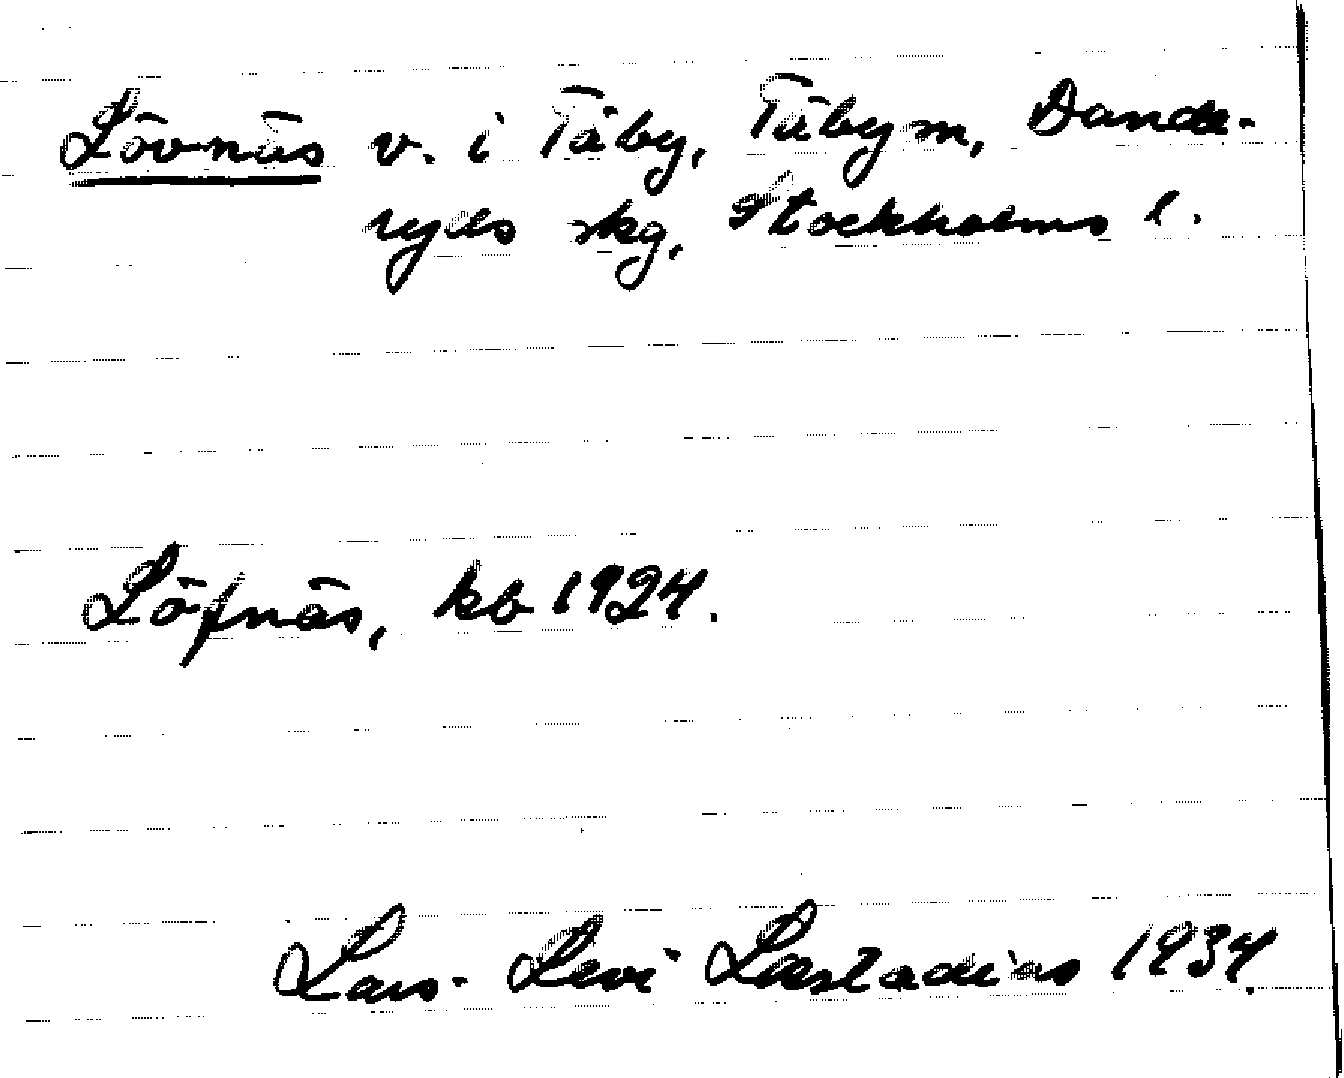 Lövnäs v. i Täby, Täby sn, Dande-
ryds skg, Stockholms l.
Löfnäs, kb 1924.
Lars-Levi Læstadius 1934.